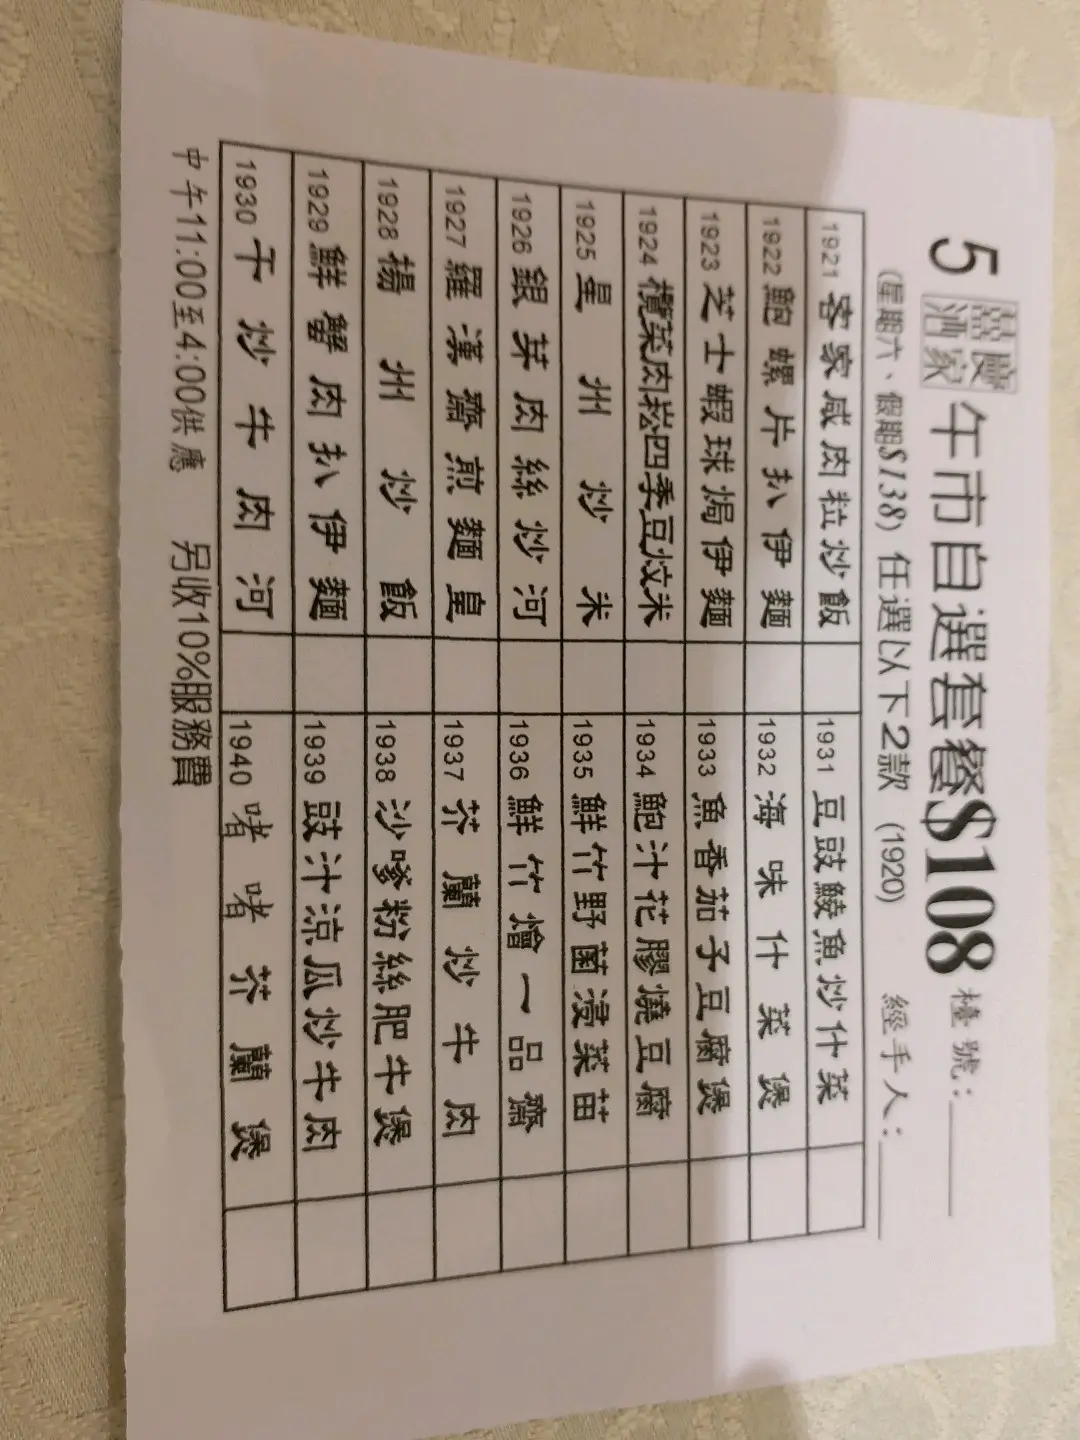 5 囍慶酒家 午市自選套餐$108 檯號：
(星期六、假期$138) 任選以下2款 (1920) 經手人：
1921 客家咸肉粒炒飯 1931 豆豉鯪魚炒什菜
1922 鮑螺片扒伊麵 1932 海味什菜煲
1923 芝士蝦球焗伊麵 1933 魚香茄子豆腐煲
1924 欖菜肉松四季豆炆米 1934 鮑汁花膠燒豆腐
1925 星州炒米 1935 鮮竹野菌浸菜苗
1926 銀芽肉絲炒河 1936 鮮竹燴一品齋
1927 羅漢齋煎麵皇 1937 芥蘭炒牛肉
1928 楊州炒飯 1938 沙嗲粉絲肥牛煲
1929 鮮蟹肉扒伊麵 1939 豉汁涼瓜炒牛肉
1930 干炒牛肉河 1940 啫啫芥蘭煲
中午11:00至4:00供應 另收10%服務費